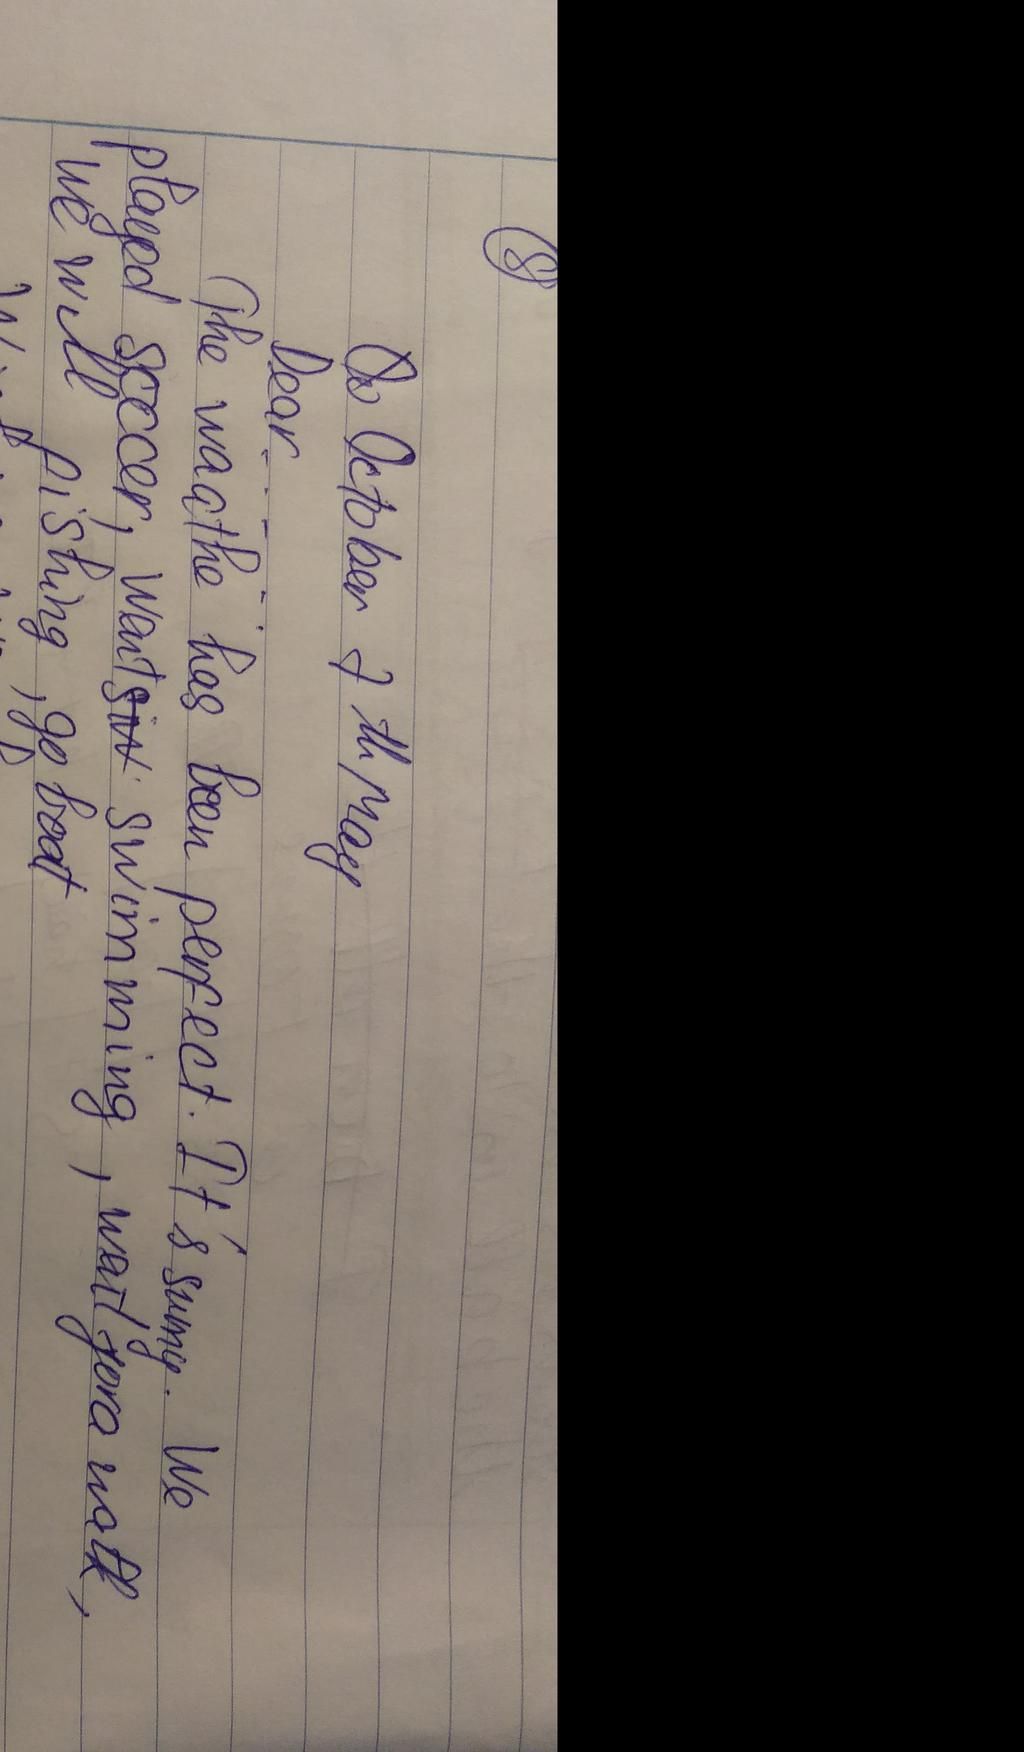 8
October 7 th May
Dear - - - -
The waathe has been perfect. It's suny. We
played soccer, want swimming, want for a walk,
we will fishing, go boat